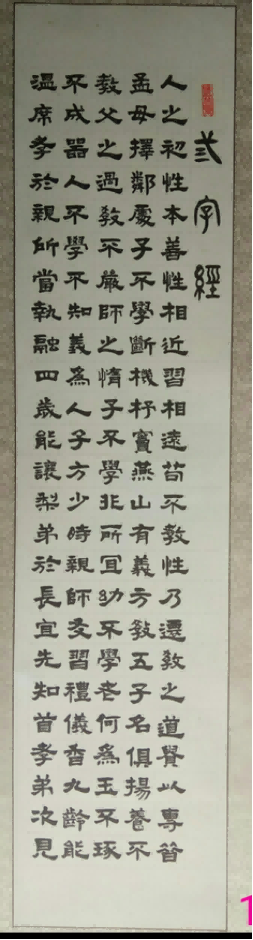 弎字經
人之初性本善性相近習相遠苟不教性乃遷教之道貴以專昔
孟母擇鄰處子不學斷機杼竇燕山有義方教五子名俱揚養不
教父之過教不嚴師之惰子不學非所宜幼不學老何為玉不琢
不成器人不學不知義為人子方少時親師友習禮儀香九齡能
溫席孝於親所當執融四歲能讓梨弟於長宜先知首孝弟次見
1